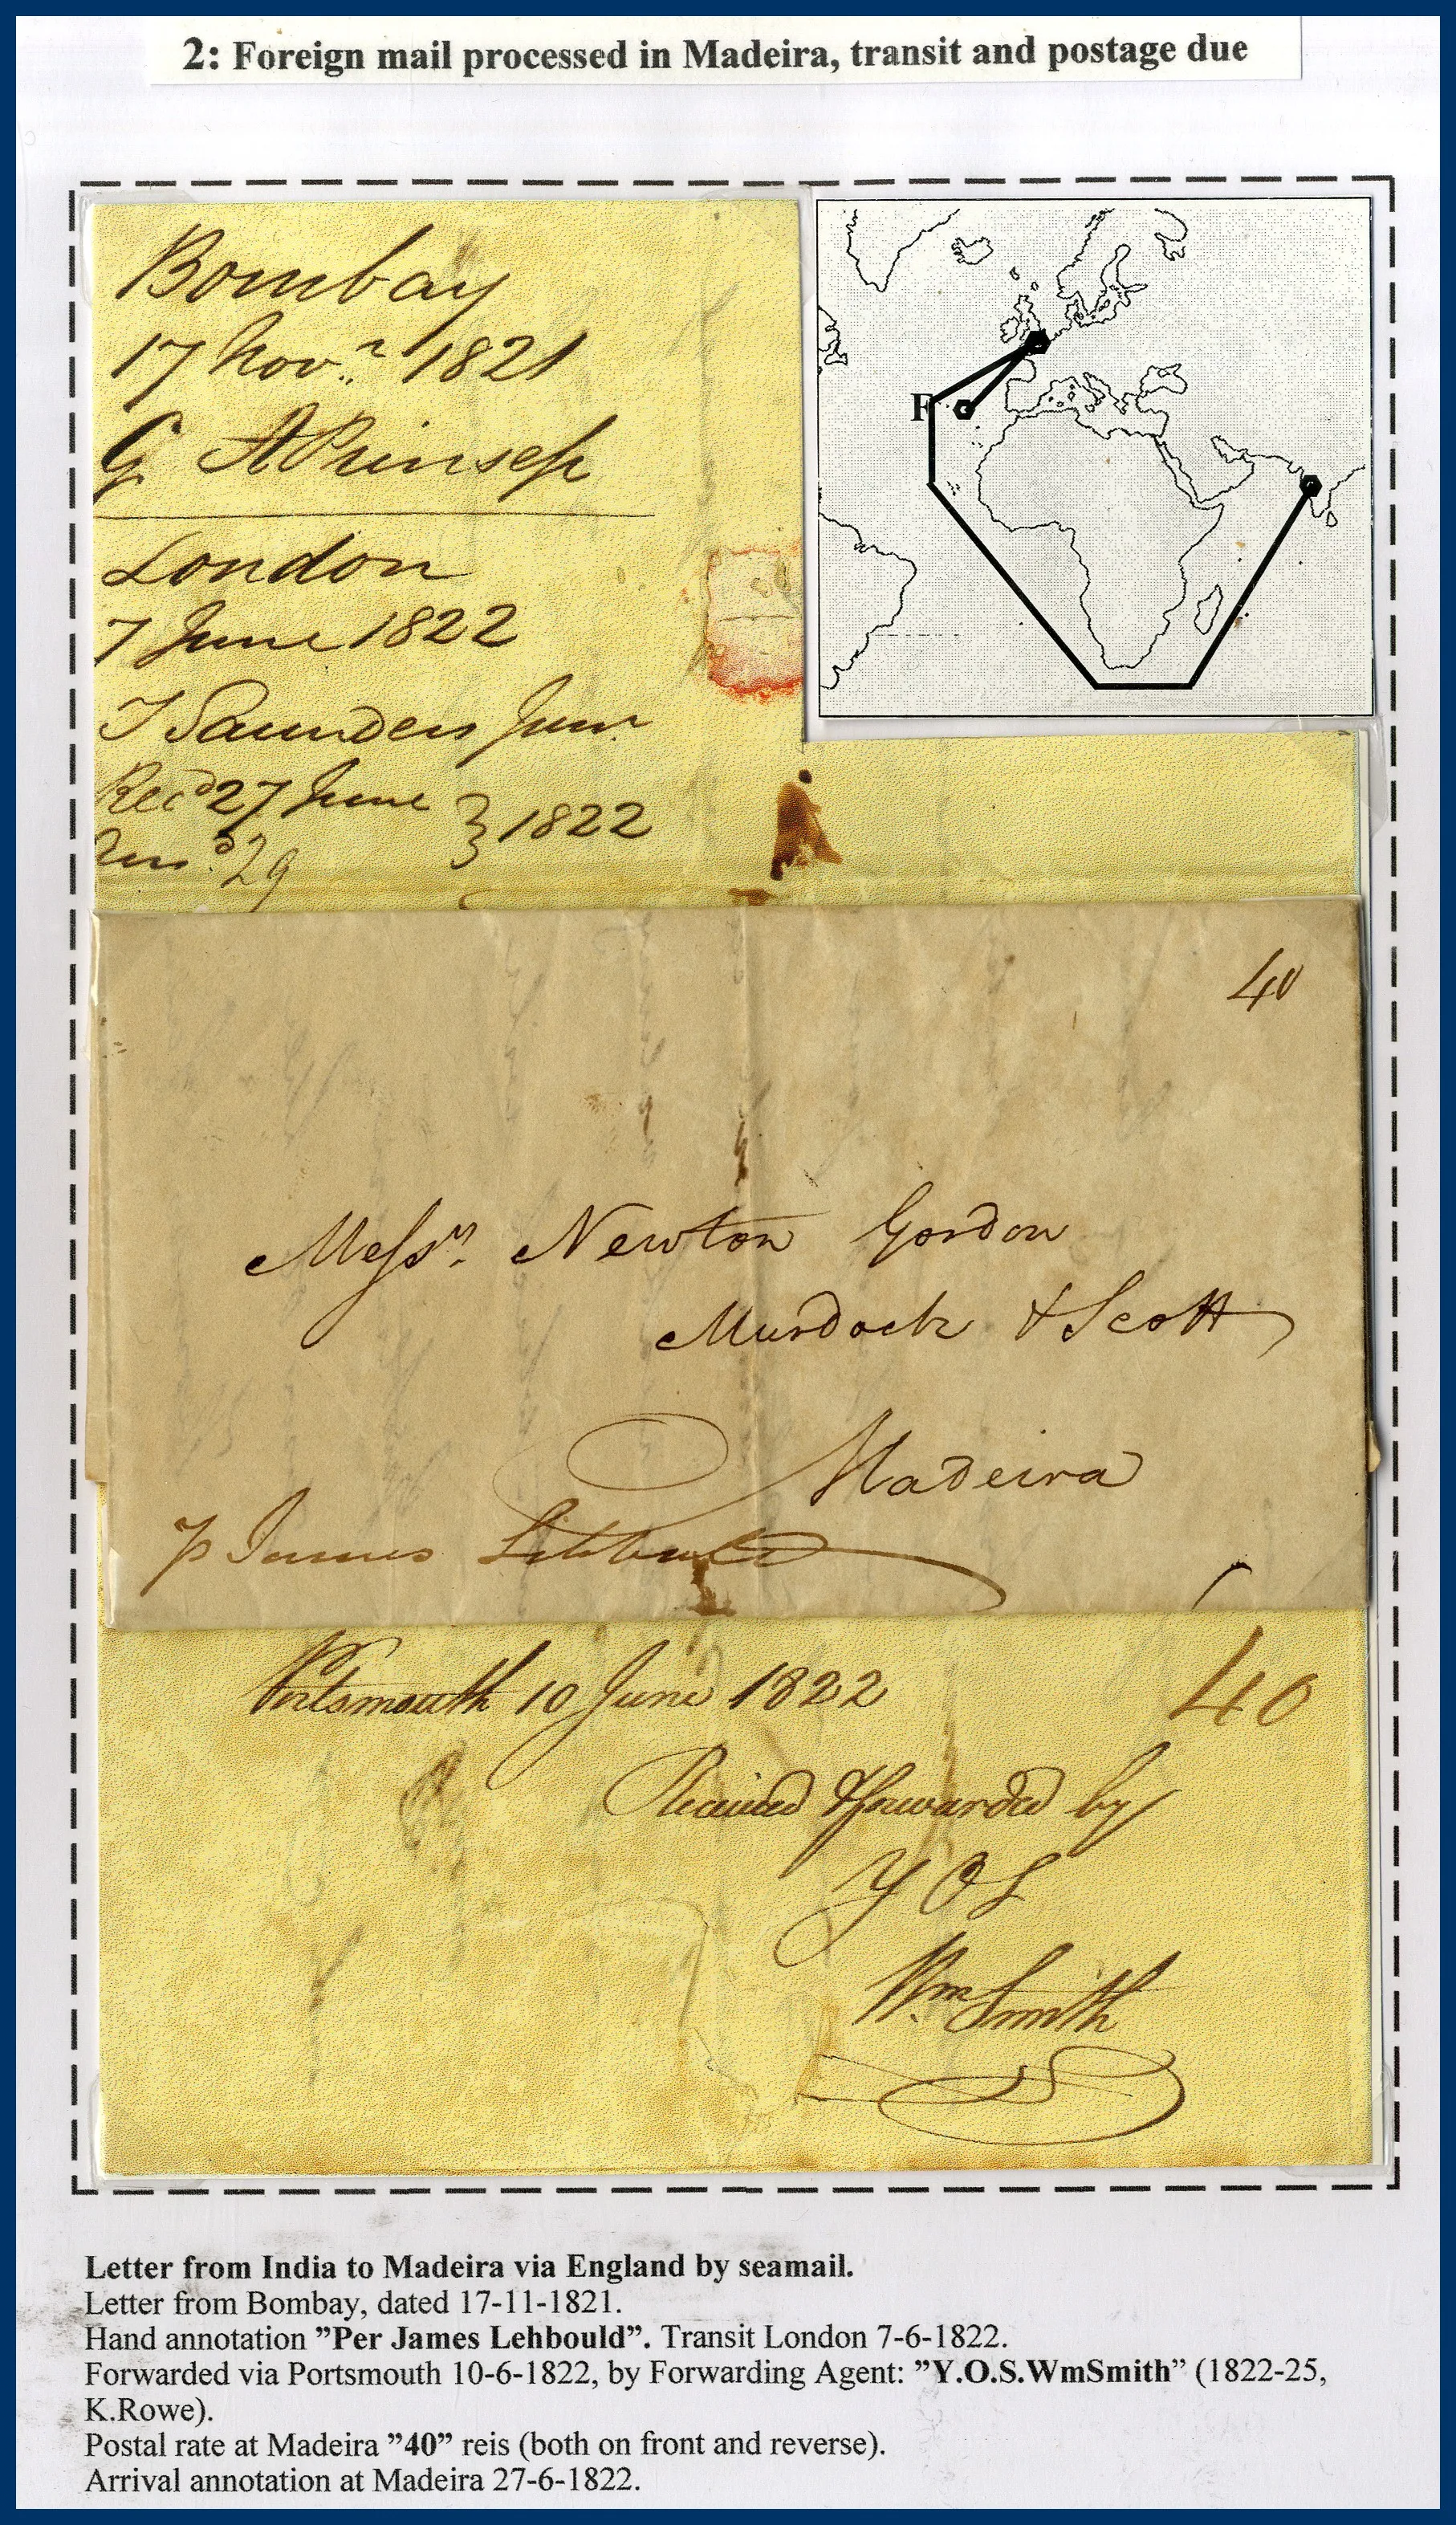 2: Foreign mail processed in Madeira, transit and postage due
Bombay
17 Novr. 1821
G A Prinsep
London
7 June 1822
T Saunders Junr
Recd 27 June } 1822
Ansd. 29
F
40
Messrs. Newton Gordon
Murdoch & Scott
Madeira
p James
Portsmouth 10 June 1822
40
Received & forwarded by
Y O S
Wm Smith
Letter from India to Madeira via England by seamail.
Letter from Bombay, dated 17-11-1821.
Hand annotation ”Per James Lehbould”. Transit London 7-6-1822.
Forwarded via Portsmouth 10-6-1822, by Forwarding Agent: ”Y.O.S.WmSmith” (1822-25,
K.Rowe).
Postal rate at Madeira ”40” reis (both on front and reverse).
Arrival annotation at Madeira 27-6-1822.